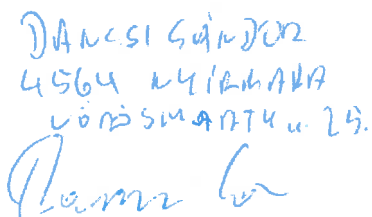 DANCSI SÁNDOR
4564 NYÍRMADA
VÖRÖSMARTY u. 25.